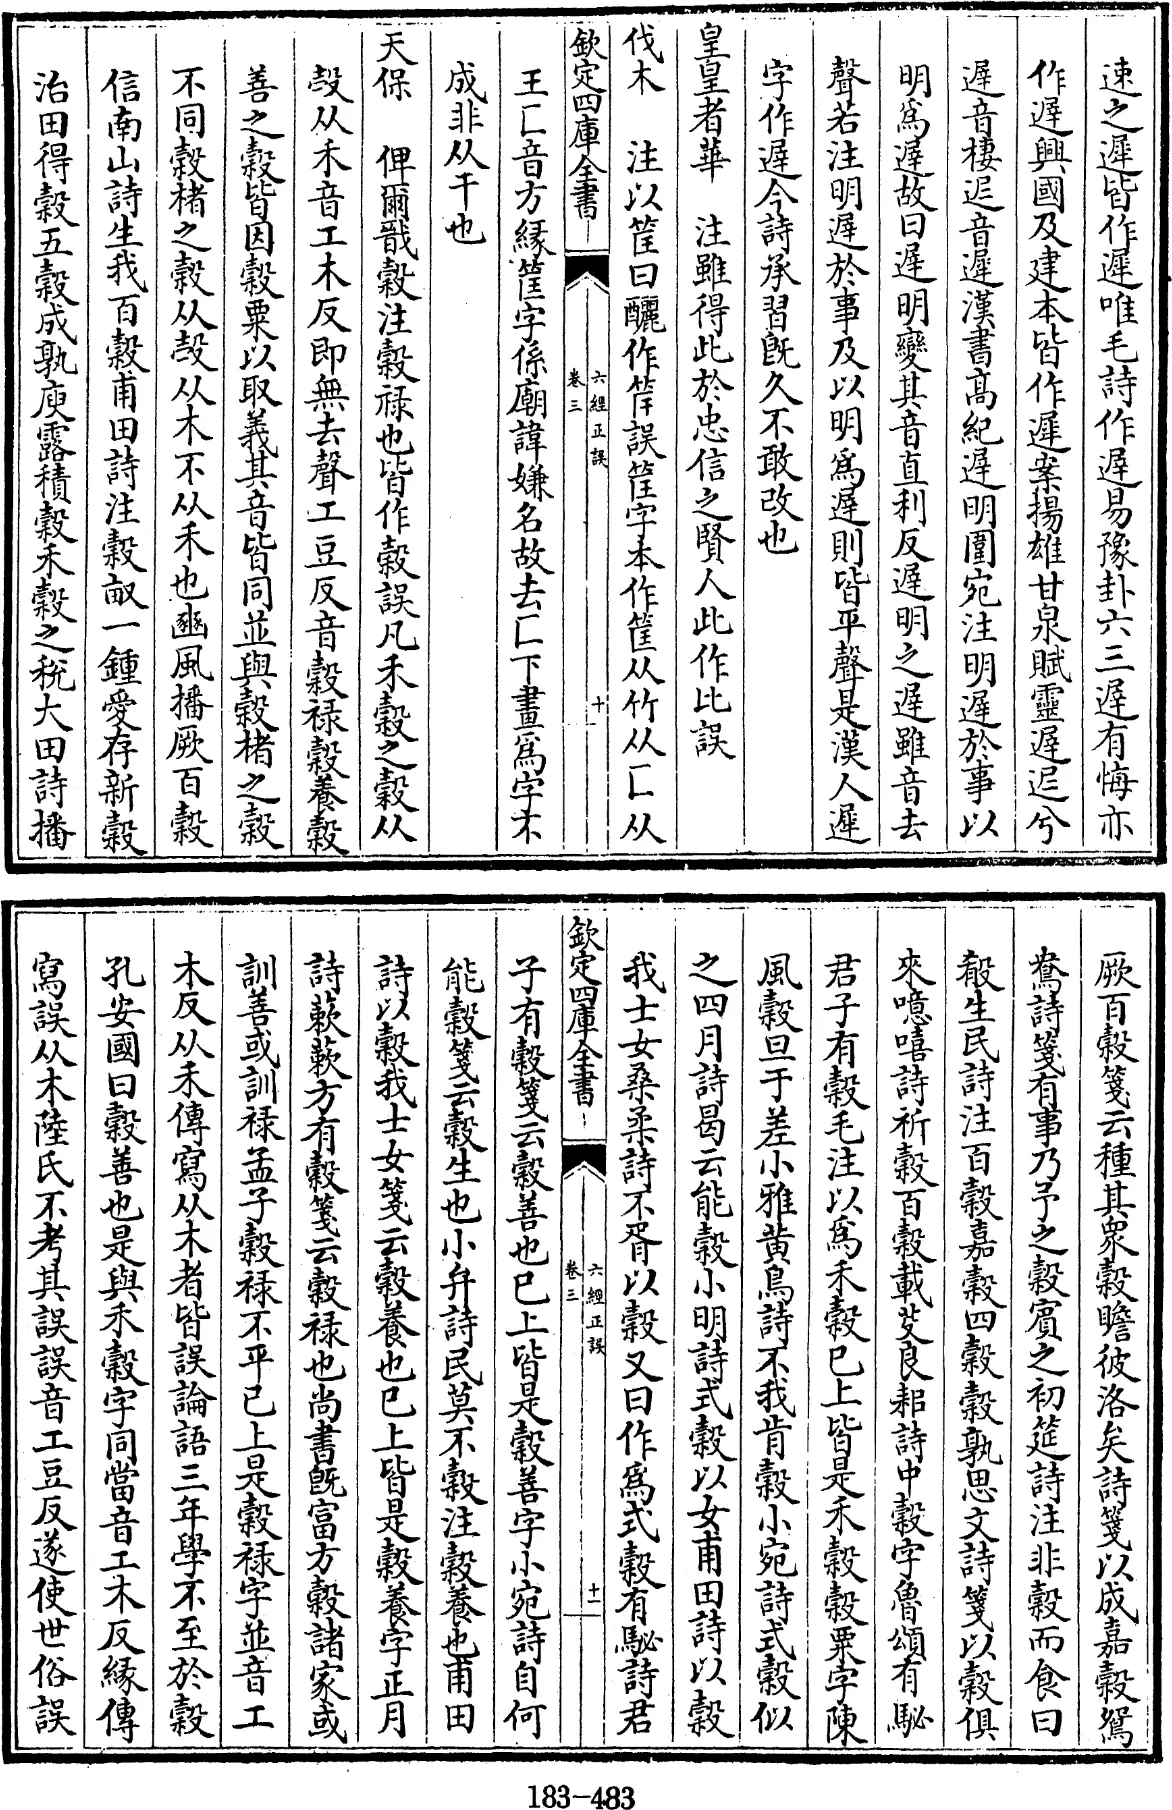 速之遲皆作遲唯毛詩作遟易豫卦六三遟有悔亦
作遟興國及建本皆作遲案揚雄甘泉賦靈遟迟兮
遟音棲迟音遲漢書高紀遟明圍宛注明遟於事以
明為遟故曰遟明變其音直利反遟明之遟雖音去
聲若注明遟於事及以明為遟則皆平聲是漢人遲
字作遟今詩承習既久不敢改也
皇皇者華　注雖得此於忠信之賢人此作比誤
伐木　注以筐曰釃作筓誤筐字本作筐从竹从匚从
欽定四庫全書
六經正誤
卷三
十
王匚音方緣筐字係廟諱嫌名故去匚下畫為字不
成非从干也
天保　俾爾戩穀注穀祿也皆作榖誤凡禾穀之穀从
𣪊从禾音工木反即無去聲工豆反音穀祿穀養穀
善之穀皆因穀粟以取義其音皆同並與榖楮之榖
不同榖楮之榖从𣪊从木不从禾也豳風播厥百穀
信南山詩生我百穀甫田詩注穀畝一鍾愛存新穀
治田得穀五穀成孰庾露積穀禾穀之稅大田詩播
厥百穀箋云種其衆穀瞻彼洛矣詩箋以成嘉穀鴛
鴦詩箋有事乃予之穀賓之初筵詩注非穀而食曰
殽生民詩注百穀嘉穀四穀穀孰思文詩箋以穀俱
來噫嘻詩祈穀百穀載芟良耜詩中穀字魯頌有駜
君子有穀毛注以為禾穀已上皆是禾穀穀粟字陳
風穀旦于差小雅黃鳥詩不我肯穀小宛詩式穀似
之四月詩曷云能穀小明詩式穀以女甫田詩以穀
我士女桑柔詩不胥以穀又曰作為式穀有駜詩君
欽定四庫全書
六經正誤
卷三
十一
子有穀箋云穀善也已上皆是穀善字小宛詩自何
能穀箋云穀生也小弁詩民莫不穀注穀養也甫田
詩以穀我士女箋云穀養也已上皆是穀養字正月
詩蔌蔌方有穀箋云穀祿也尚書旣富方穀諸家或
訓善或訓祿孟子穀祿不平已上是穀祿字並音工
木反从禾傳寫从木者皆誤論語三年學不至於穀
孔安國曰穀善也是與禾穀字同當音工木反緣傳
寫誤从木陸氏不考其誤誤音工豆反遂使世俗誤
183-483